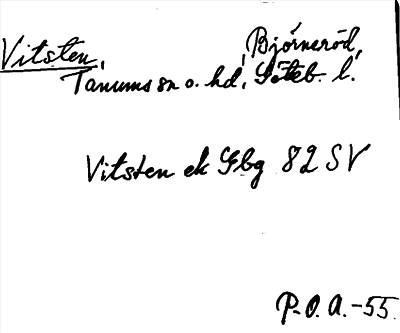 Vitsten, Björneröd,
Tanums sn o. hd, Göteb. l.
Vitsten ek Gbg 82 SV
P.O.A.-55.